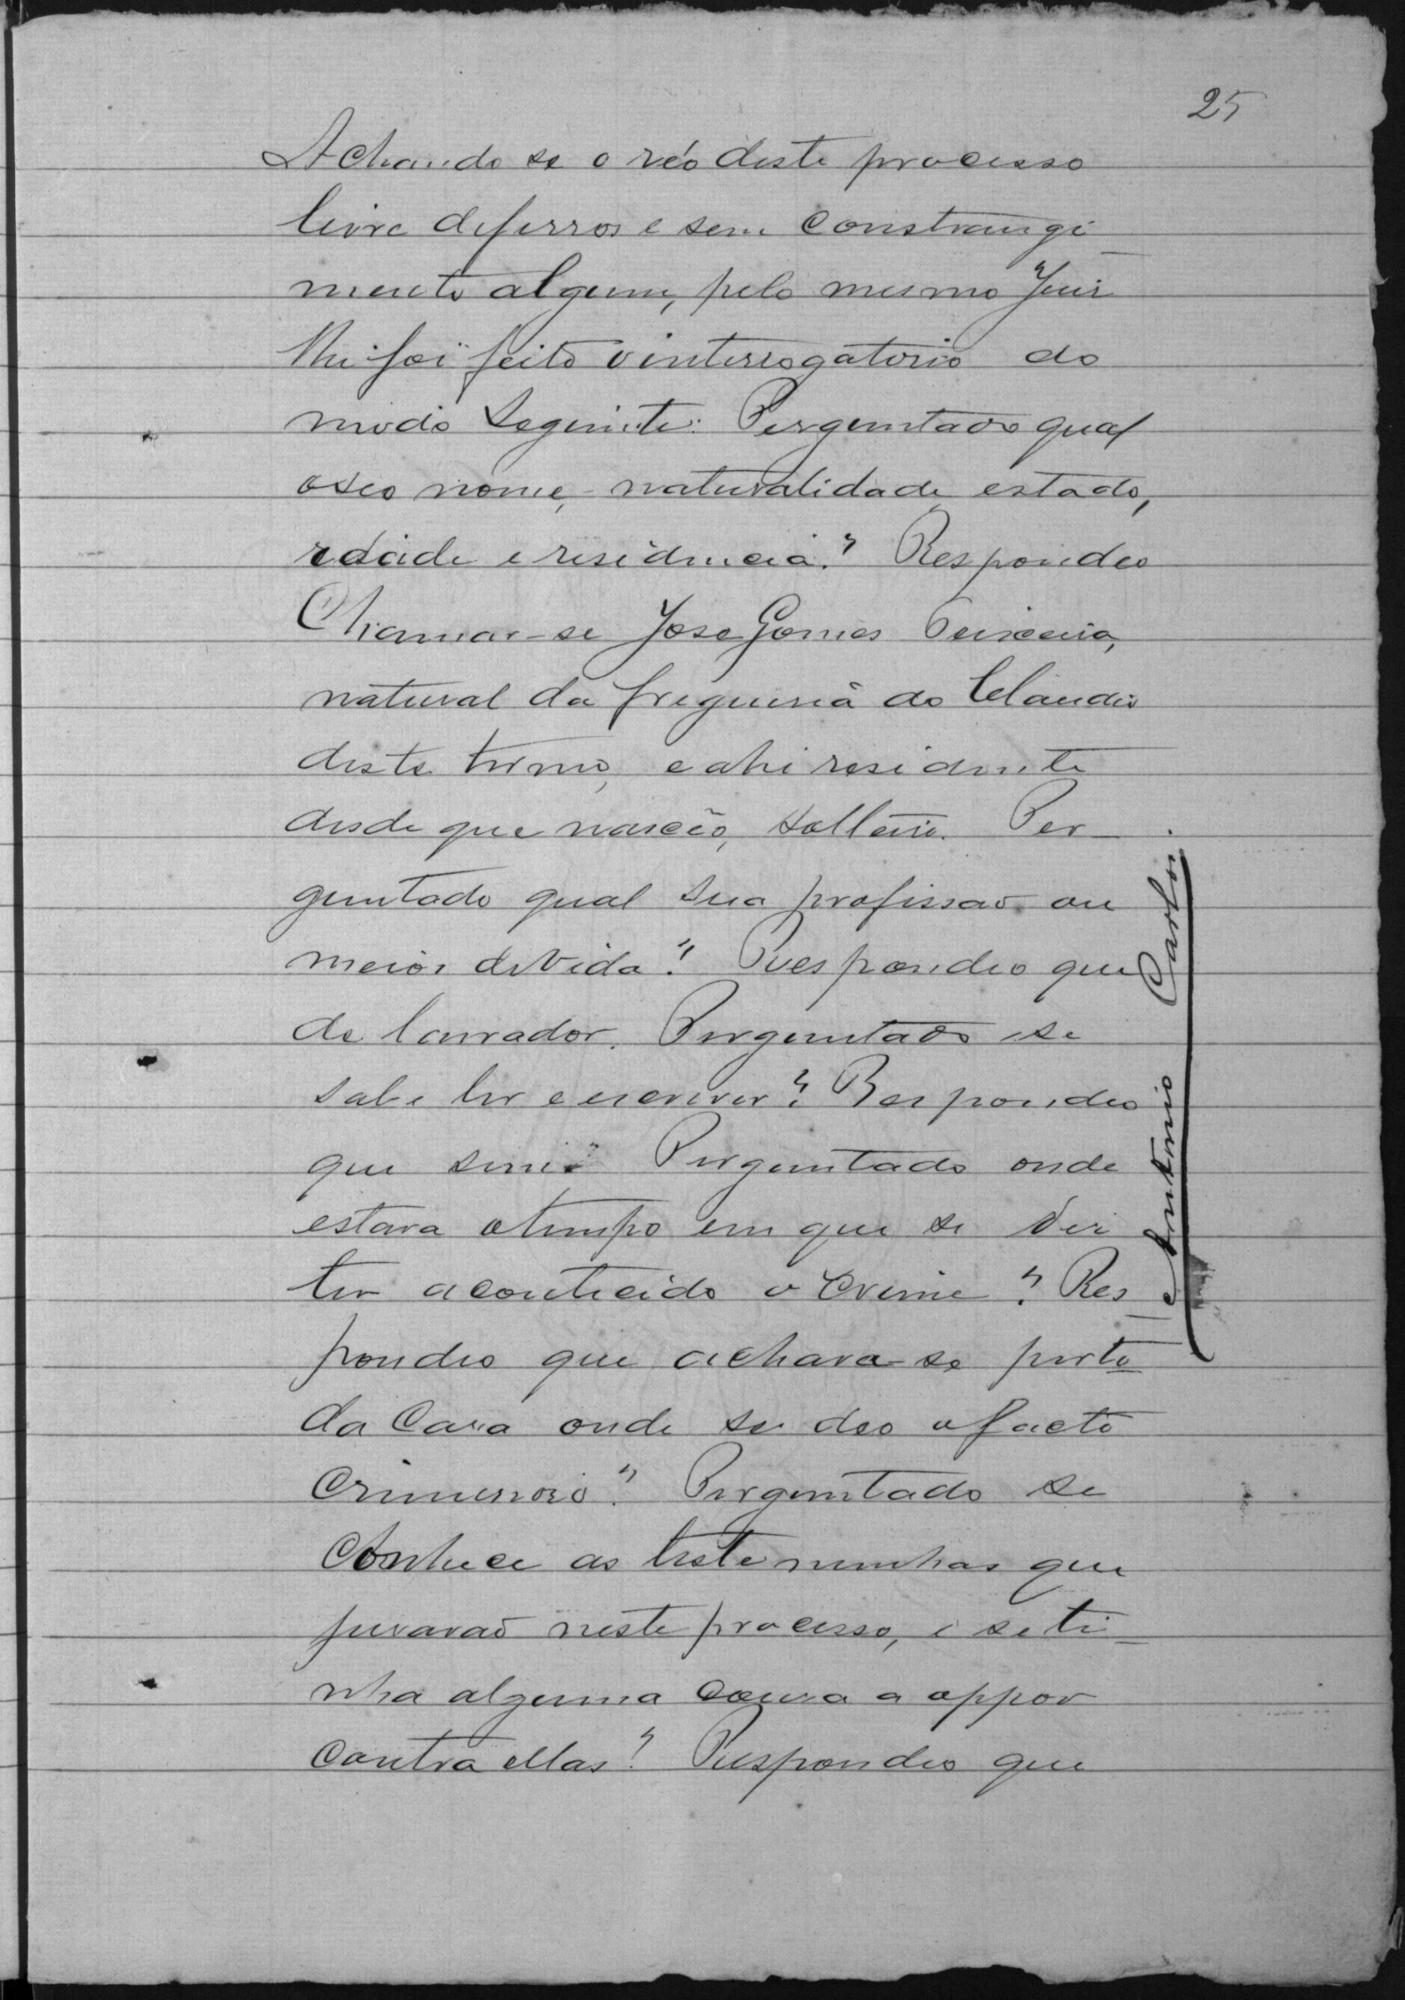 25
Achando se o réo deste processo
livre de ferros e sem constrangi
mento algum, pelo mesmo Juis
lhe foi feito o interrogatorio do
modo seguinte: Perguntado qual
o seo nome, naturalidade, estado,
idade e residencia? Respondeo
Chamar-se Jose Gomes Teixeira,
natural da freguesia do Claudio
deste termo, e ahi residente
desde que nasceo, solteiro. Per-
guntado qual sua profissao ou
meios de vida? Respondeo que
de lavrador. Perguntado se
sabe ler e escrever? Respondeo
que sim. Perguntado onde
estava o tempo em que se diz
ter acontecido o crime? Res
pondeo que achava-se perto
da Casa onde se deo o facto
Criminoso. Perguntado se
Conhece as testemunhas que
jurarão neste processo, e se ti-
nha alguma cousa a oppor
contra ellas? Respondeo que
Antonio Carlos.